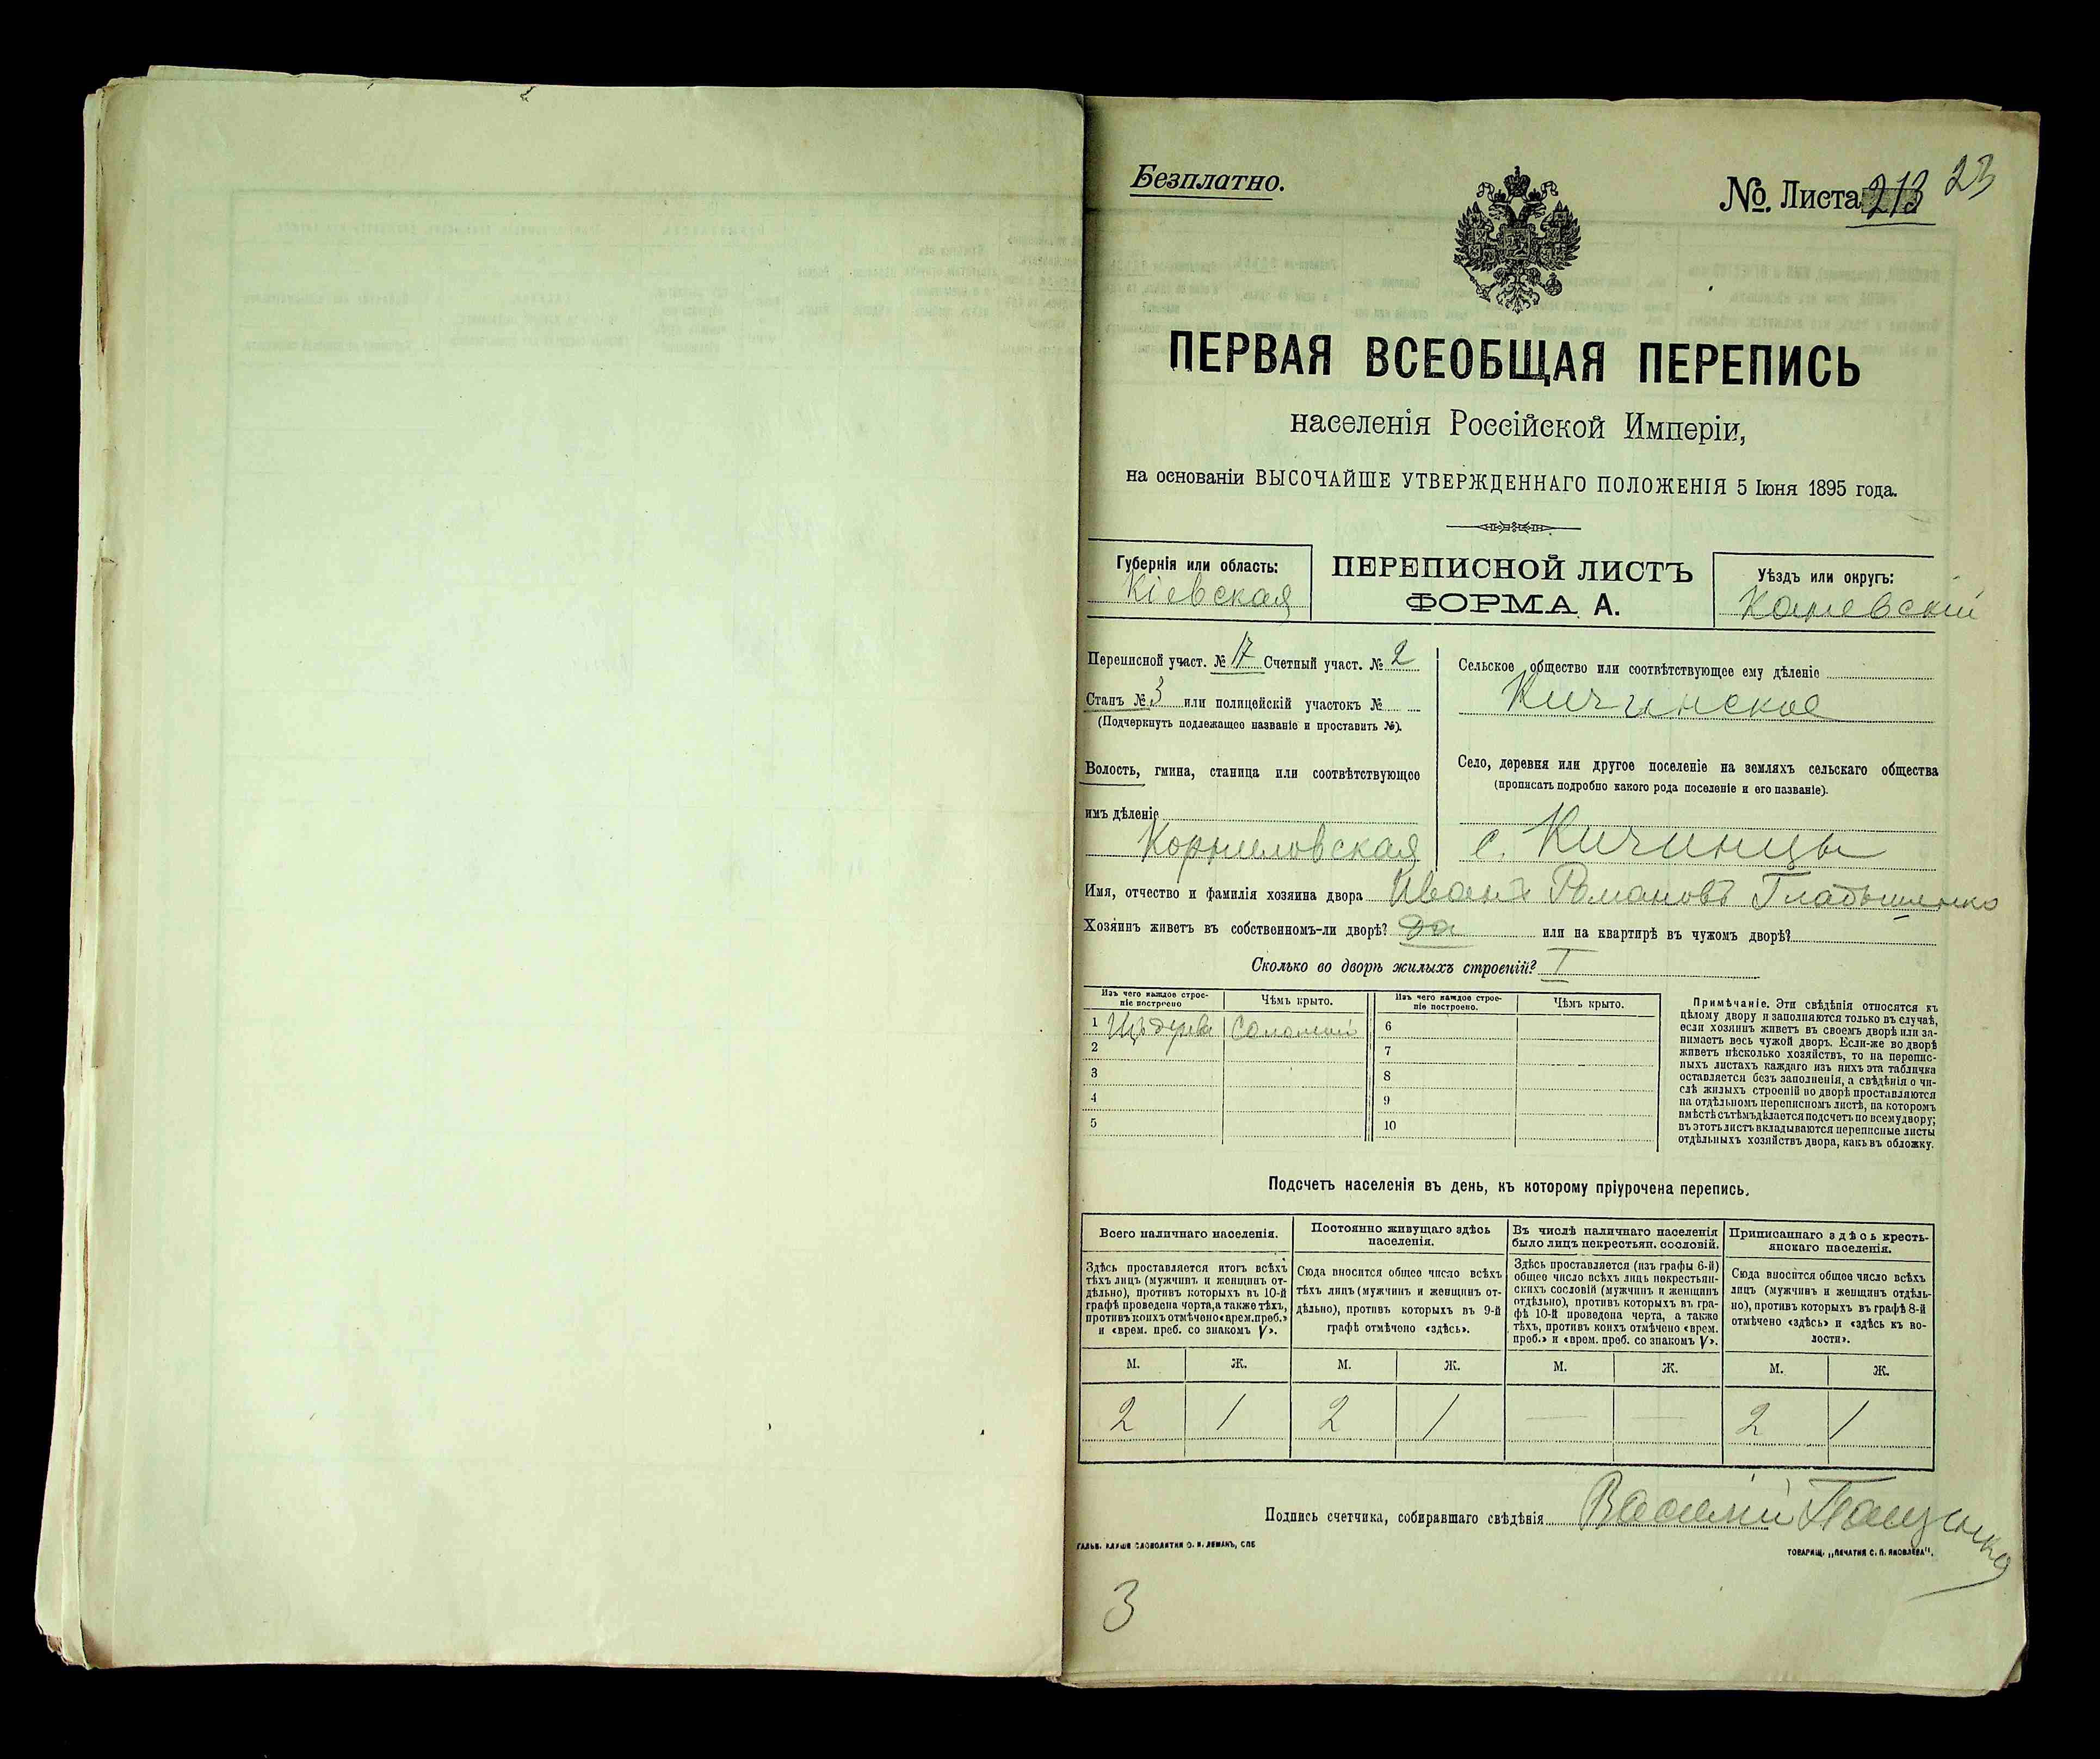 Безплатно.
№ Листа 213 23
ПЕРВАЯ ВСЕОБЩАЯ ПЕРЕПИСЬ
населенія Россійской Имперіи,
на основаніи ВЫСОЧАЙШЕ УТВЕРЖДЕННАГО ПОЛОЖЕНІЯ 5 Іюня 1895 года.
Губернія или область:
Кіевская
ПЕРЕПИСНОЙ ЛИСТЪ
ФОРМА А.
Уѣздъ или округъ:
Каневскій
Переписной участ. № 17 Счетный участ. № 2
Станъ № 3 или полицейскій участокъ №
(Подчеркнуть подлежащее названіе и проставить №).
Волость, гмина, станица или соотвѣтствующее
имъ дѣленіе
Корниловская
Сельское общество или соотвѣтствующее ему дѣленіе
Кичинское
Село, деревня или другое поселеніе на земляхъ сельскаго общества
(прописать подробно какого рода поселеніе и его названіе).
с. Кичинцы
Имя, отчество и фамилія хозяина двора Иванъ Романовъ Гладышенко
Хозяинъ живетъ въ собственномъ-ли дворѣ? да или на квартирѣ въ чужомъ дворѣ?
Сколько во дворѣ жилыхъ строеній? I
Изъ чего каждое строе-
ніе построено
Чѣмъ крыто.
Изъ чего каждое строе-
ніе построено.
Чѣмъ крыто.
1 Изъ дерева Соломой 6
2 7
3 8
4 9
5 10
Примѣчаніе. Эти свѣдѣнія относятся къ
цѣлому двору и заполняются только въ случаѣ,
если хозяинъ живетъ въ своемъ дворѣ или за-
нимаетъ весь чужой дворъ. Если-же во дворѣ
живетъ нѣсколько хозяйствъ, то на перепис-
ныхъ листахъ каждаго изъ нихъ эта табличка
оставляется безъ заполненія, а свѣдѣнія о чи-
слѣ жилыхъ строеній во дворѣ проставляются
на отдѣльномъ переписномъ листѣ, на которомъ
вмѣстѣ съ тѣмъ дѣлается подсчетъ по всему двору;
въ этотъ листъ вкладываются переписные листы
отдѣльныхъ хозяйствъ двора, какъ въ обложку.
Подсчетъ населенія въ день, къ которому пріурочена перепись.
Всего наличнаго населенія.
Здѣсь проставляется итогъ всѣхъ
тѣхъ лицъ (мужчинъ и женщинъ от-
дѣльно), противъ которыхъ въ 10-й
графѣ проведена черта, а также тѣхъ,
противъ коихъ отмѣчено «врем. преб.»
и «врем. преб. со знакомъ V».
Постоянно живущаго здѣсь
населенія.
Сюда вносится общее число всѣхъ
тѣхъ лицъ (мужчинъ и женщинъ от-
дѣльно), противъ которыхъ въ 9-й
графѣ отмѣчено «здѣсь».
Въ числѣ наличнаго населенія
было лицъ некрестьян. сословій.
Здѣсь проставляется (изъ графы 6-й)
общее число всѣхъ лицъ некрестьян-
скихъ сословій (мужчинъ и женщинъ
отдѣльно), противъ которыхъ въ гра-
фѣ 10-й проведена черта, а также
тѣхъ, противъ коихъ отмѣчено «врем.
преб.» и «врем. преб. со знакомъ V».
Приписаннаго здѣсь кресть-
янскаго населенія.
Сюда вносится общее число всѣхъ
лицъ (мужчинъ и женщинъ отдѣль-
но), противъ которыхъ въ графѣ 8-й
отмѣчено «здѣсь» и «здѣсь къ во-
лости».
М. Ж. М. Ж. М. Ж. М. Ж.
2 1 2 1 — — 2 1
Подпись счетчика, собиравшаго свѣдѣнія Василій
ГАЛЬВ. КЛИШЕ СЛОВОЛИТНИ О. И. ЛЕМАНЪ, СПБ
ТОВАРИЩ. „ПЕЧАТНЯ С. П. ЯКОВЛЕВА".
3